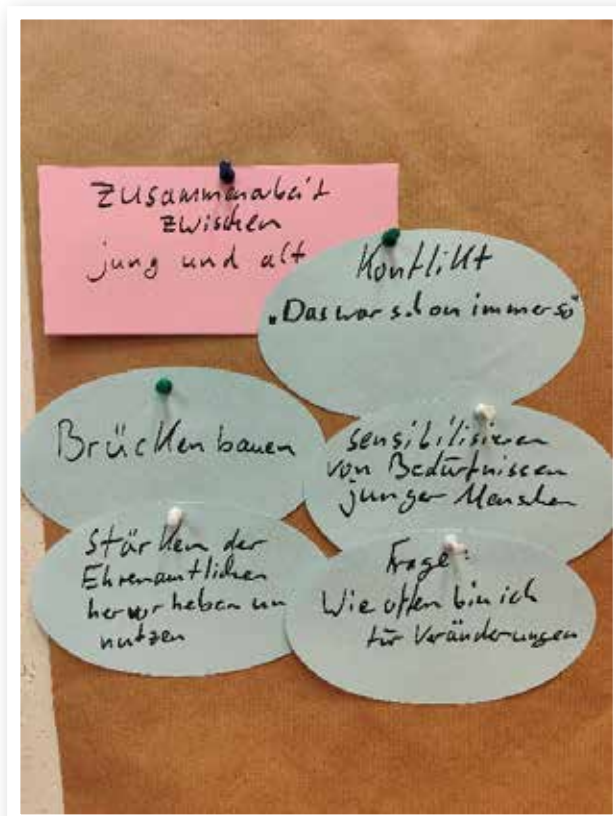 Zusammenarbeit
zwischen
jung und alt
Konflikt
„Das war schon immer so"
Brücken bauen
sensibilisieren
von Bedürfnissen
junger Menschen
Stärken der
Ehrenamtlichen
hervorheben un
nutzen
Frage:
Wie offen bin ich
für Veränderungen